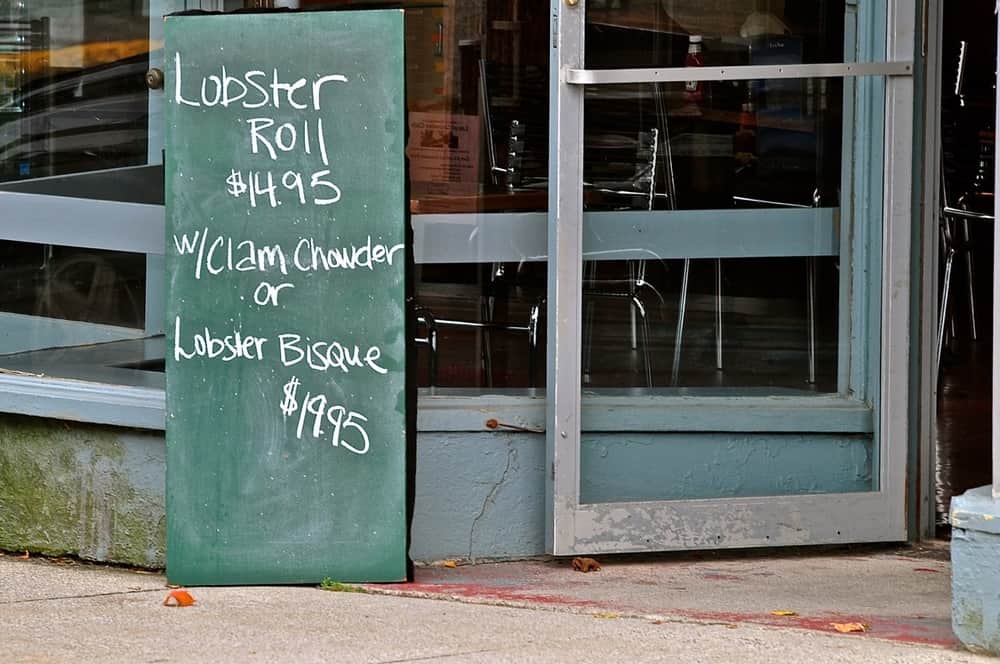 Lobster
Roll
$14.95
w/Clam Chowder
or
Lobster Bisque
$19.95